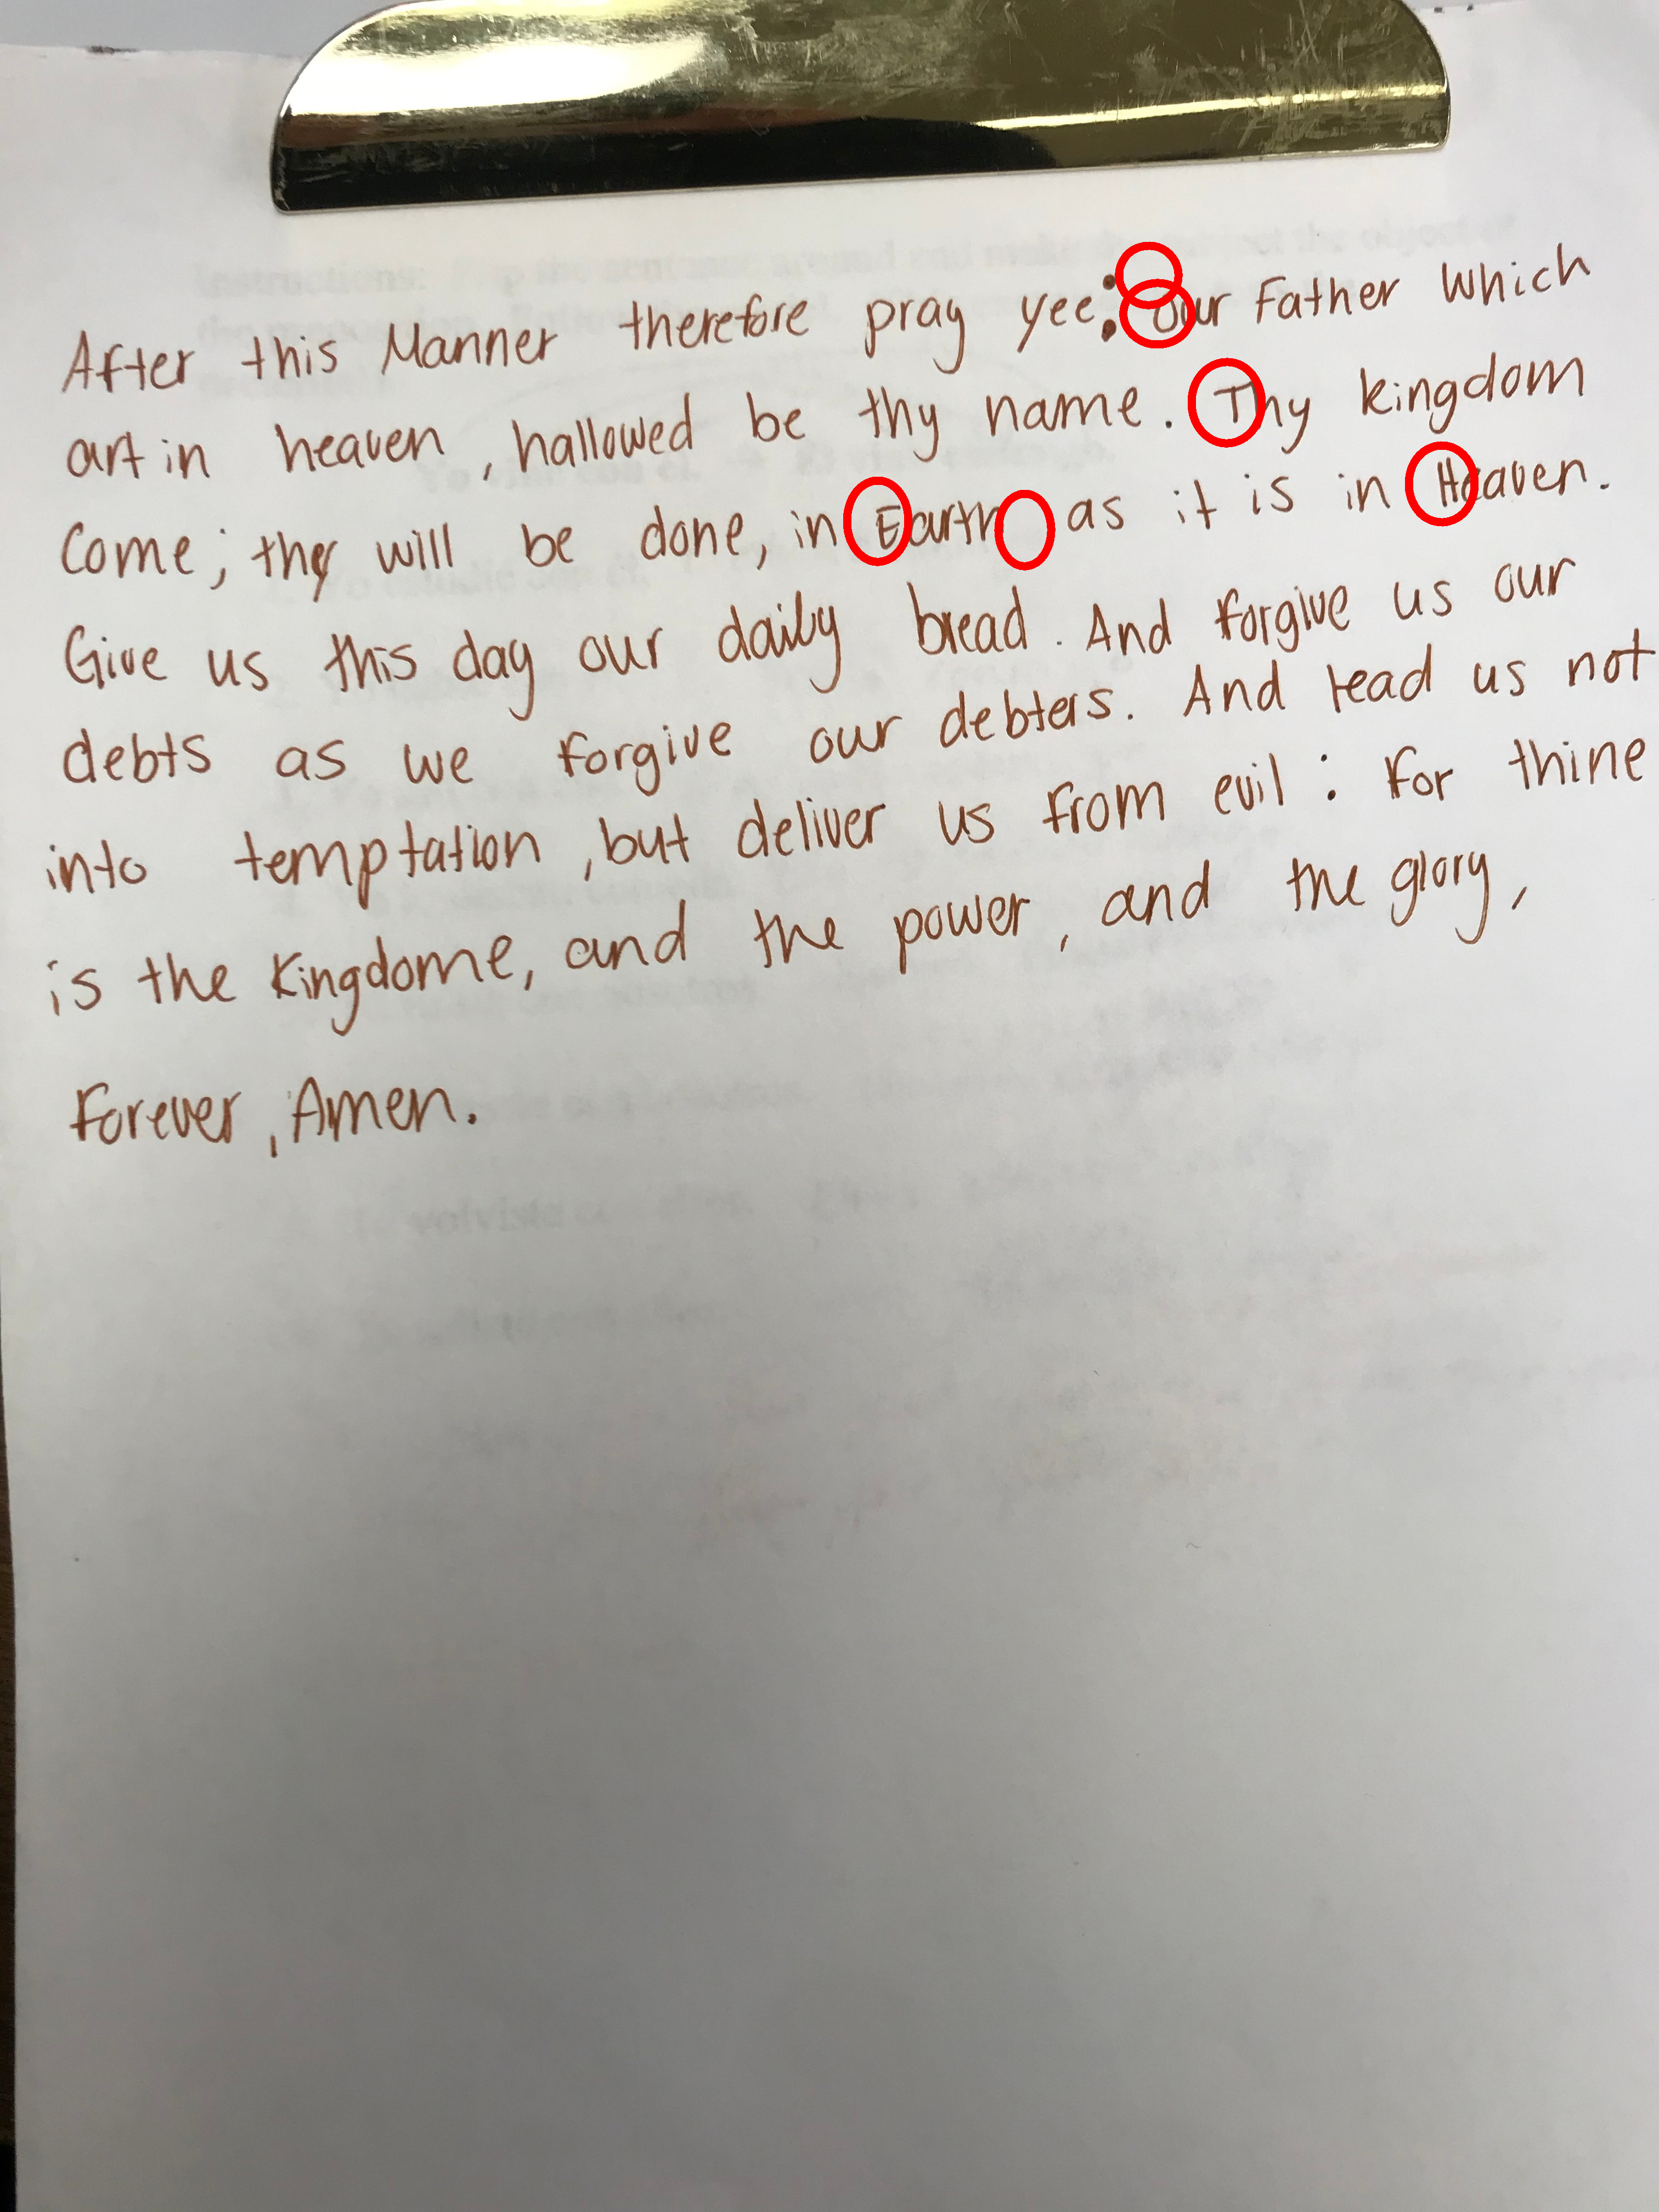 After this Manner therefore pray yee: Our Father which
art in heaven, hallowed be thy name. Thy kingdom
Come; thy will be done, in Earth as it is in Heaven.
Give us this day our daily bread. And forgive us our
debts as we forgive our debters. And lead us not
into temptation, but deliver us from evil: For thine
is the Kingdome, and the power, and the glory,
Forever, Amen.